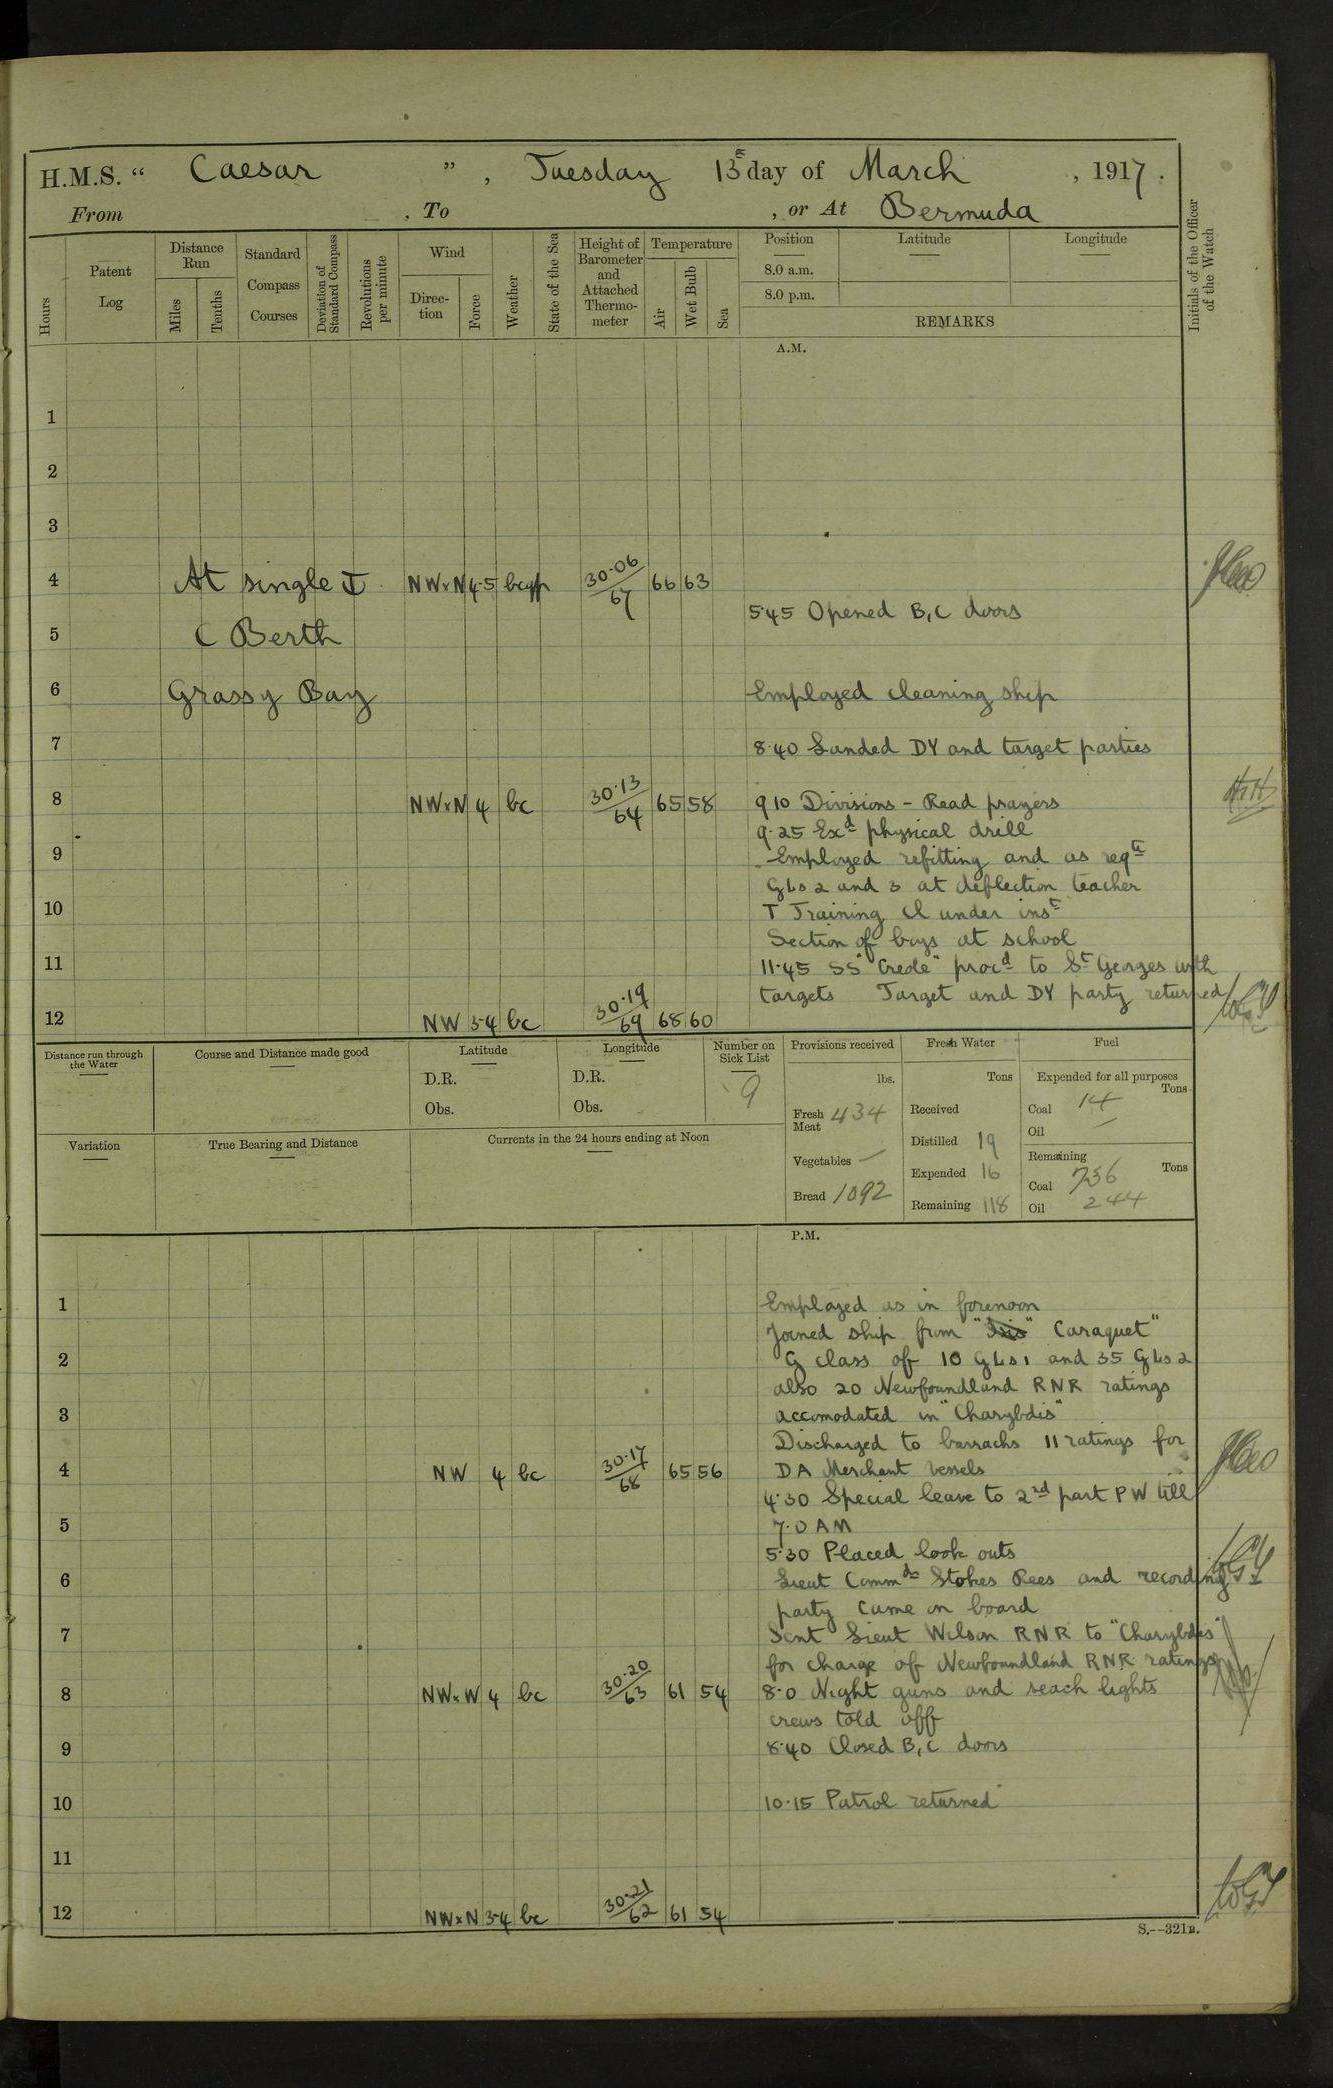 H.M.S. “ Caesar ” , Tuesday 13th day of March , 1917 .
From , To , or At Bermuda
Hours
Patent Log
Distance Run
Miles
Tenths
Standard Compass Courses
Deviation of Standard Compass
Revolutions per minute
Wind
Direc-tion
Force
Weather
State of the Sea
Height of Barometer and Attached Thermo-meter
Temperature
Air
Wet Bulb
Sea
Position
Latitude
Longitude
8.0 a.m.
8.0 p.m.
REMARKS
Initials of the Officer of the Watch
A.M.
1
2
3
4 At single NW x N 4-5 30·06/67 66 63
5·45 Opened B, C doors
5 C Berth
6 Grassy Bay Employed cleaning ship
7 8·40 Landed DY and target parties
8 NW x N 4 bc 30·13/64 65 58 9 10 Divisions - Read prayers
9·25 Exd physical drill
9 Employed refitting and as reqte
GLs 2 and 3 at deflection teacher
10 T Training Cl under inst
Section of boys at school
11 11·45 SS "Creole" procd to St Georges with
targets Target and DY party returned
12 NW 3-4 bc 30·19/69 68 60
Distance run through the Water
Course and Distance made good
Latitude
D.R.
Obs.
Longitude
D.R.
Obs.
Number on Sick List
9
Provisions received
lbs.
Fresh Meat 434
Vegetables —
Bread 1092
Fresh Water
Tons
Received
Distilled 19
Expended 16
Remaining 118
Fuel
Expended for all purposes
Tons
Coal 14
Oil —
Remaining
Tons
Coal 736
Oil 244
Variation
True Bearing and Distance
Currents in the 24 hours ending at Noon
P.M.
1 Employed as in forenoon
Joined ship from "Isis" Caraquet"
2 G class of 10 GLs 1 and 35 GLs 2
also 20 Newfoundland RNR ratings
3 accomodated in "Charybdis"
Discharged to barracks 11 ratings for
4 NW 4 bc 30·17/68 65 56 DA Merchant vessels
4·30 Special leave to 2nd part PW till
5 7·0 AM
5·30 Placed look outs
6 Lieut Commdr Stokes Rees and recording
party came on board
7 Sent Lieut Wilson RNR to "Charybdis"
for charge of Newfoundland RNR ratings
8 NW x W 4 bc 30·20/63 61 54 8·0 Night guns and seach lights
crews told off
9 8·40 Closed B, C doors
10 10·15 Patrol returned
11
12 NW x N 3-4 bc 30·21/62 61 54
S.--321B.